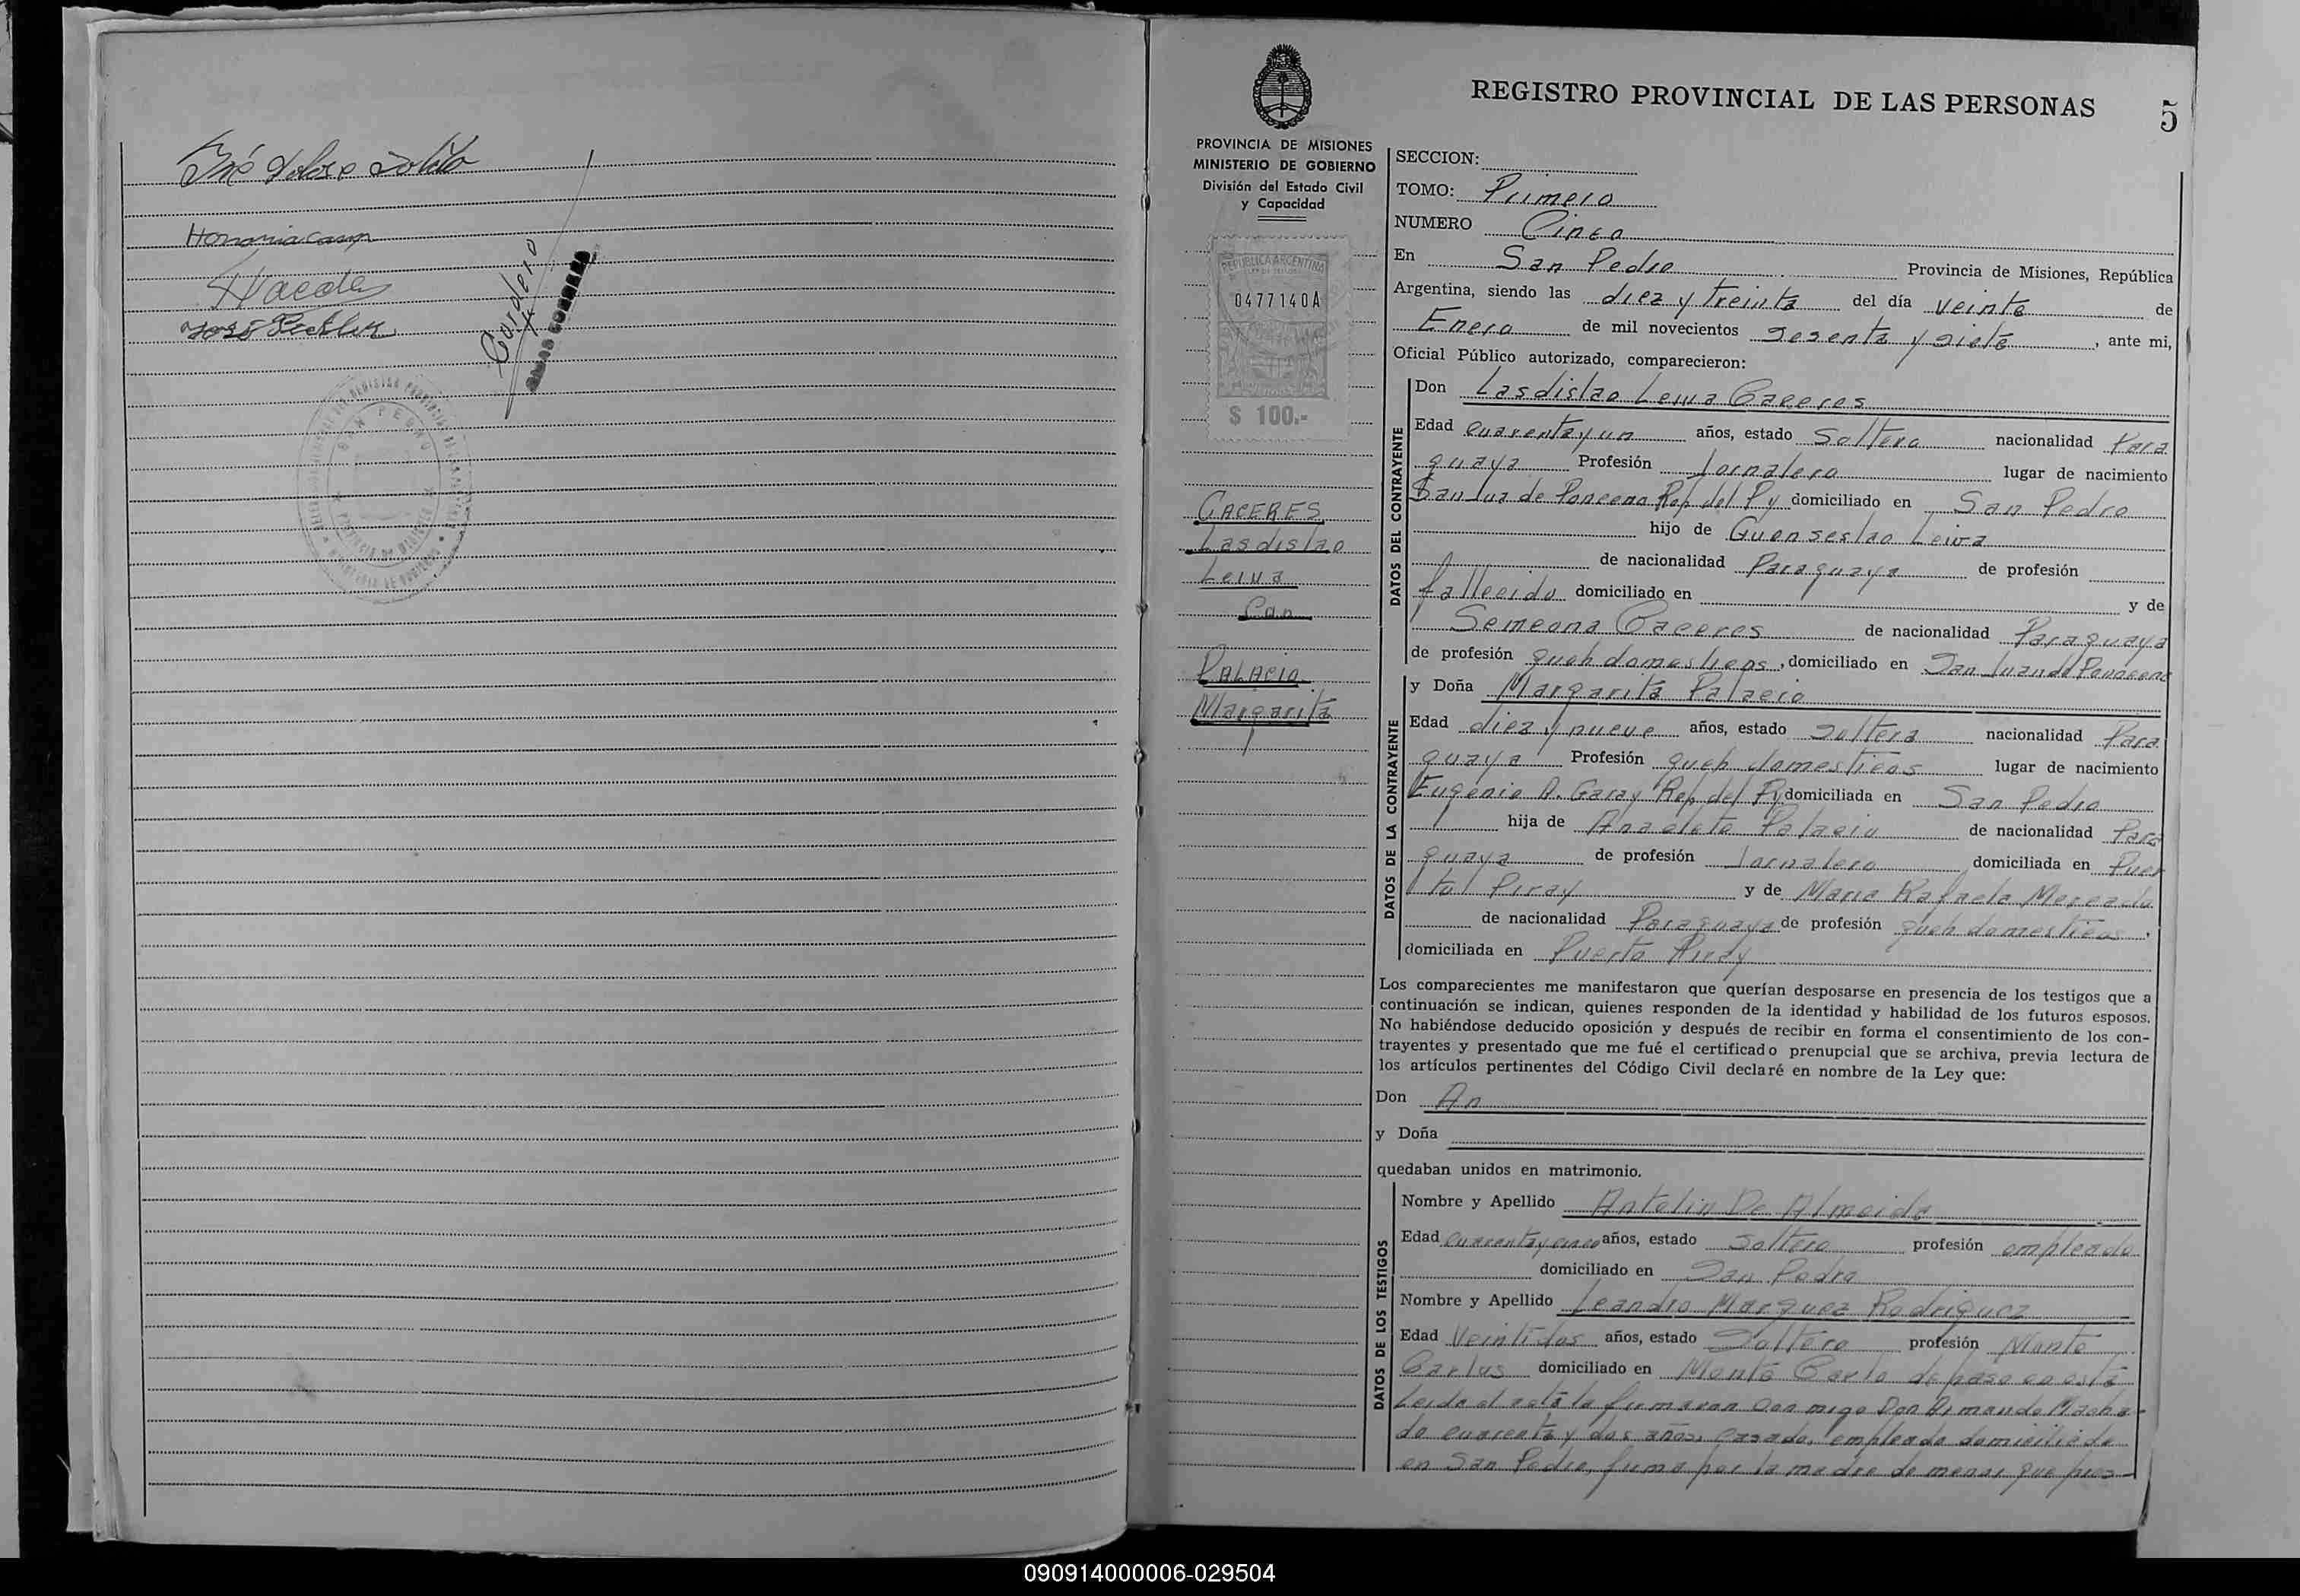 José
Honoria
Haede
José
Cordero
SAN PEDRO
REGISTRO PROVINCIAL DE LAS PERSONAS
5
PROVINCIA DE MISIONES
MINISTERIO DE GOBIERNO
División del Estado Civil
y Capacidad
REPUBLICA ARGENTINA
0477140A
$ 100.-
CACERES
Lasdislao
Leiva
Con
PALACIO
Margarita
SECCION:
TOMO: Primero
NUMERO Cinco
En San Pedro Provincia de Misiones, República
Argentina, siendo las diez y treinta del día veinte de
Enero de mil novecientos sesenta y siete, ante mi,
Oficial Público autorizado, comparecieron:
DATOS DEL CONTRAYENTE
Don Lasdislao Leiva Caceres
Edad cuarenta y un años, estado Soltero nacionalidad Para
guaya Profesión Jornalero lugar de nacimiento
de Rep del Py domiciliado en San Pedro
hijo de Guenseslao Leiva
de nacionalidad Paraguaya de profesión
fallecido domiciliado en y de
Semeona Caceres de nacionalidad Paraguaya
de profesión queh domesticos, domiciliado en San Juan de
DATOS DE LA CONTRAYENTE
y Doña Margarita Palacio
Edad diez y nueve años, estado Soltera nacionalidad Para
guaya Profesión queh domesticos lugar de nacimiento
Eugenio A. Garay Rep del Py domiciliada en San Pedro
hija de Anacleto Palacio de nacionalidad Para
guaya de profesión Jornalero domiciliada en Puer
to Piray y de Maria Rafaela Mercado
de nacionalidad Paraguaya de profesión queh domesticos,
domiciliada en Puerto Piray
Los comparecientes me manifestaron que querían desposarse en presencia de los testigos que a
continuación se indican, quienes responden de la identidad y habilidad de los futuros esposos.
No habiéndose deducido oposición y después de recibir en forma el consentimiento de los con-
trayentes y presentado que me fué el certificado prenupcial que se archiva, previa lectura de
los artículos pertinentes del Código Civil declaré en nombre de la Ley que:
Don An
y Doña
quedaban unidos en matrimonio.
DATOS DE LOS TESTIGOS
Nombre y Apellido Antolin De Almeida
Edad cuarenta y cinco años, estado Soltero profesión empleado
domiciliado en San Pedro
Nombre y Apellido Leandro Marquez Rodriguez
Edad Veintidos años, estado Soltero profesión Monte
Carlos domiciliado en Monte Carlo de paso en esta
Leida el acta la firmaron con migo Don Armando Macha-
do cuarenta y dos años, casado, empleado domiciliado
en San Pedro, firma por la madre de menor que pres-
090914000006-029504